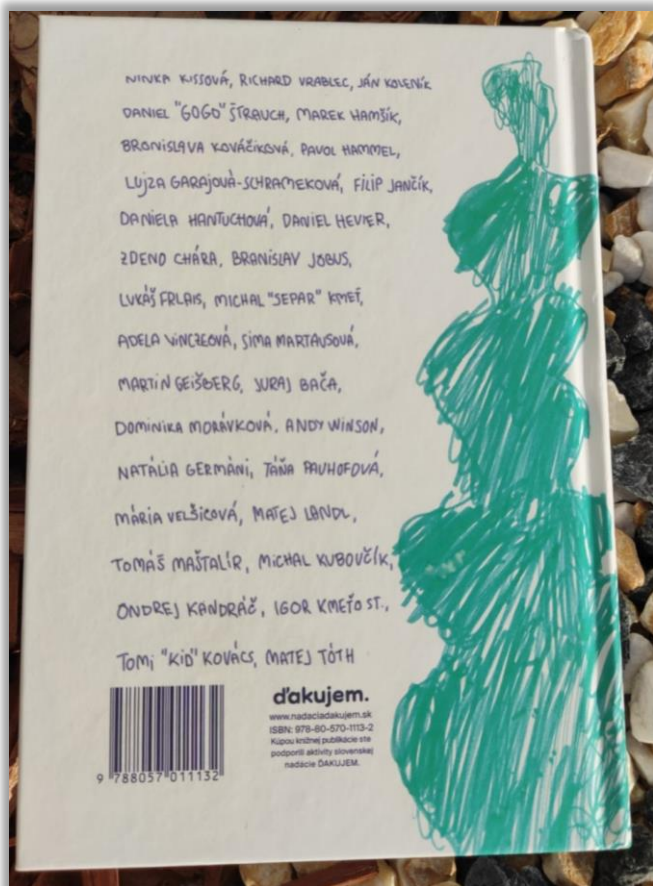 NINKA KISSOVÁ, RICHARD VRABLEC, JÁN KOLENÍK
DANIEL "GOGO" ŠTRAUCH, MAREK HAMŠÍK,
BRONISLAVA KOVÁČIKOVÁ, PAVOL HAMMEL,
LUJZA GARAJOVÁ-SCHRAMEKOVÁ, FILIP JANČÍK,
DANIELA HANTUCHOVÁ, DANIEL HEVIER,
ZDENO CHÁRA, BRANISLAV JOBUS,
LUKÁŠ FRLAJS, MICHAL "SEPAR" KMEŤ,
ADELA VINCZEOVÁ, SIMA MARTAUSOVÁ,
MARTIN GEIŠBERG, JURAJ BAČA,
DOMINIKA MORÁVKOVÁ, ANDY WINSON,
NATÁLIA GERMÁNI, TÁŇA PAUHOFOVÁ,
MÁRIA VELŠICOVÁ, MATEJ LANDL,
TOMÁŠ MAŠTALÍR, MICHAL KUBOVČÍK,
ONDREJ KANDRÁČ, IGOR KMEŤO ST.,
TOMI "KID" KOVÁCS, MATEJ TÓTH
ďakujem.
www.nadaciadakujem.sk
ISBN: 978-80-570-1113-2
Kúpou knižnej publikácie ste
podporili aktivity slovenskej
nadácie ĎAKUJEM.
9 788057 011132